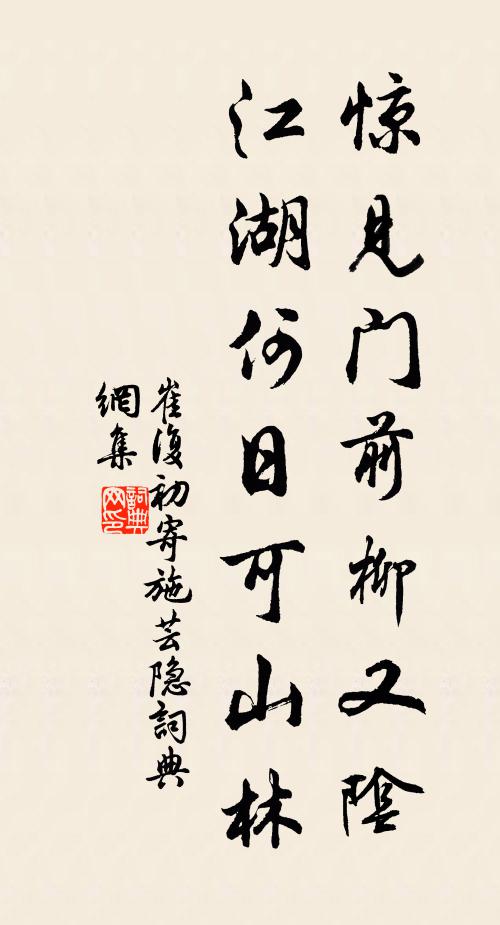 惊见门前柳又陰
江湖何日可山林
崔復初寄施芸隐詞典
網集
詞典网印